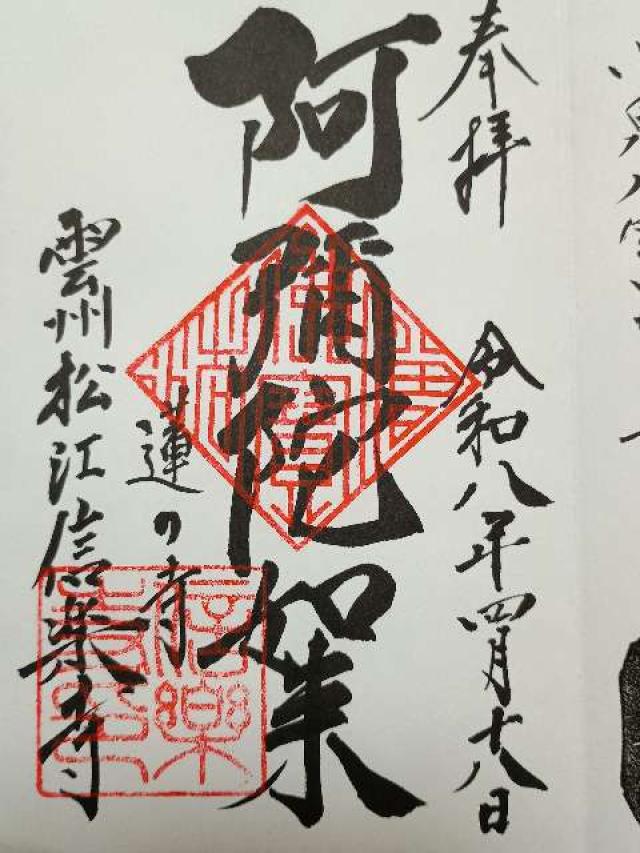 奉拝
令和八年四月十八日
阿彌陀如来
蓮の寺
雲州松江信楽寺